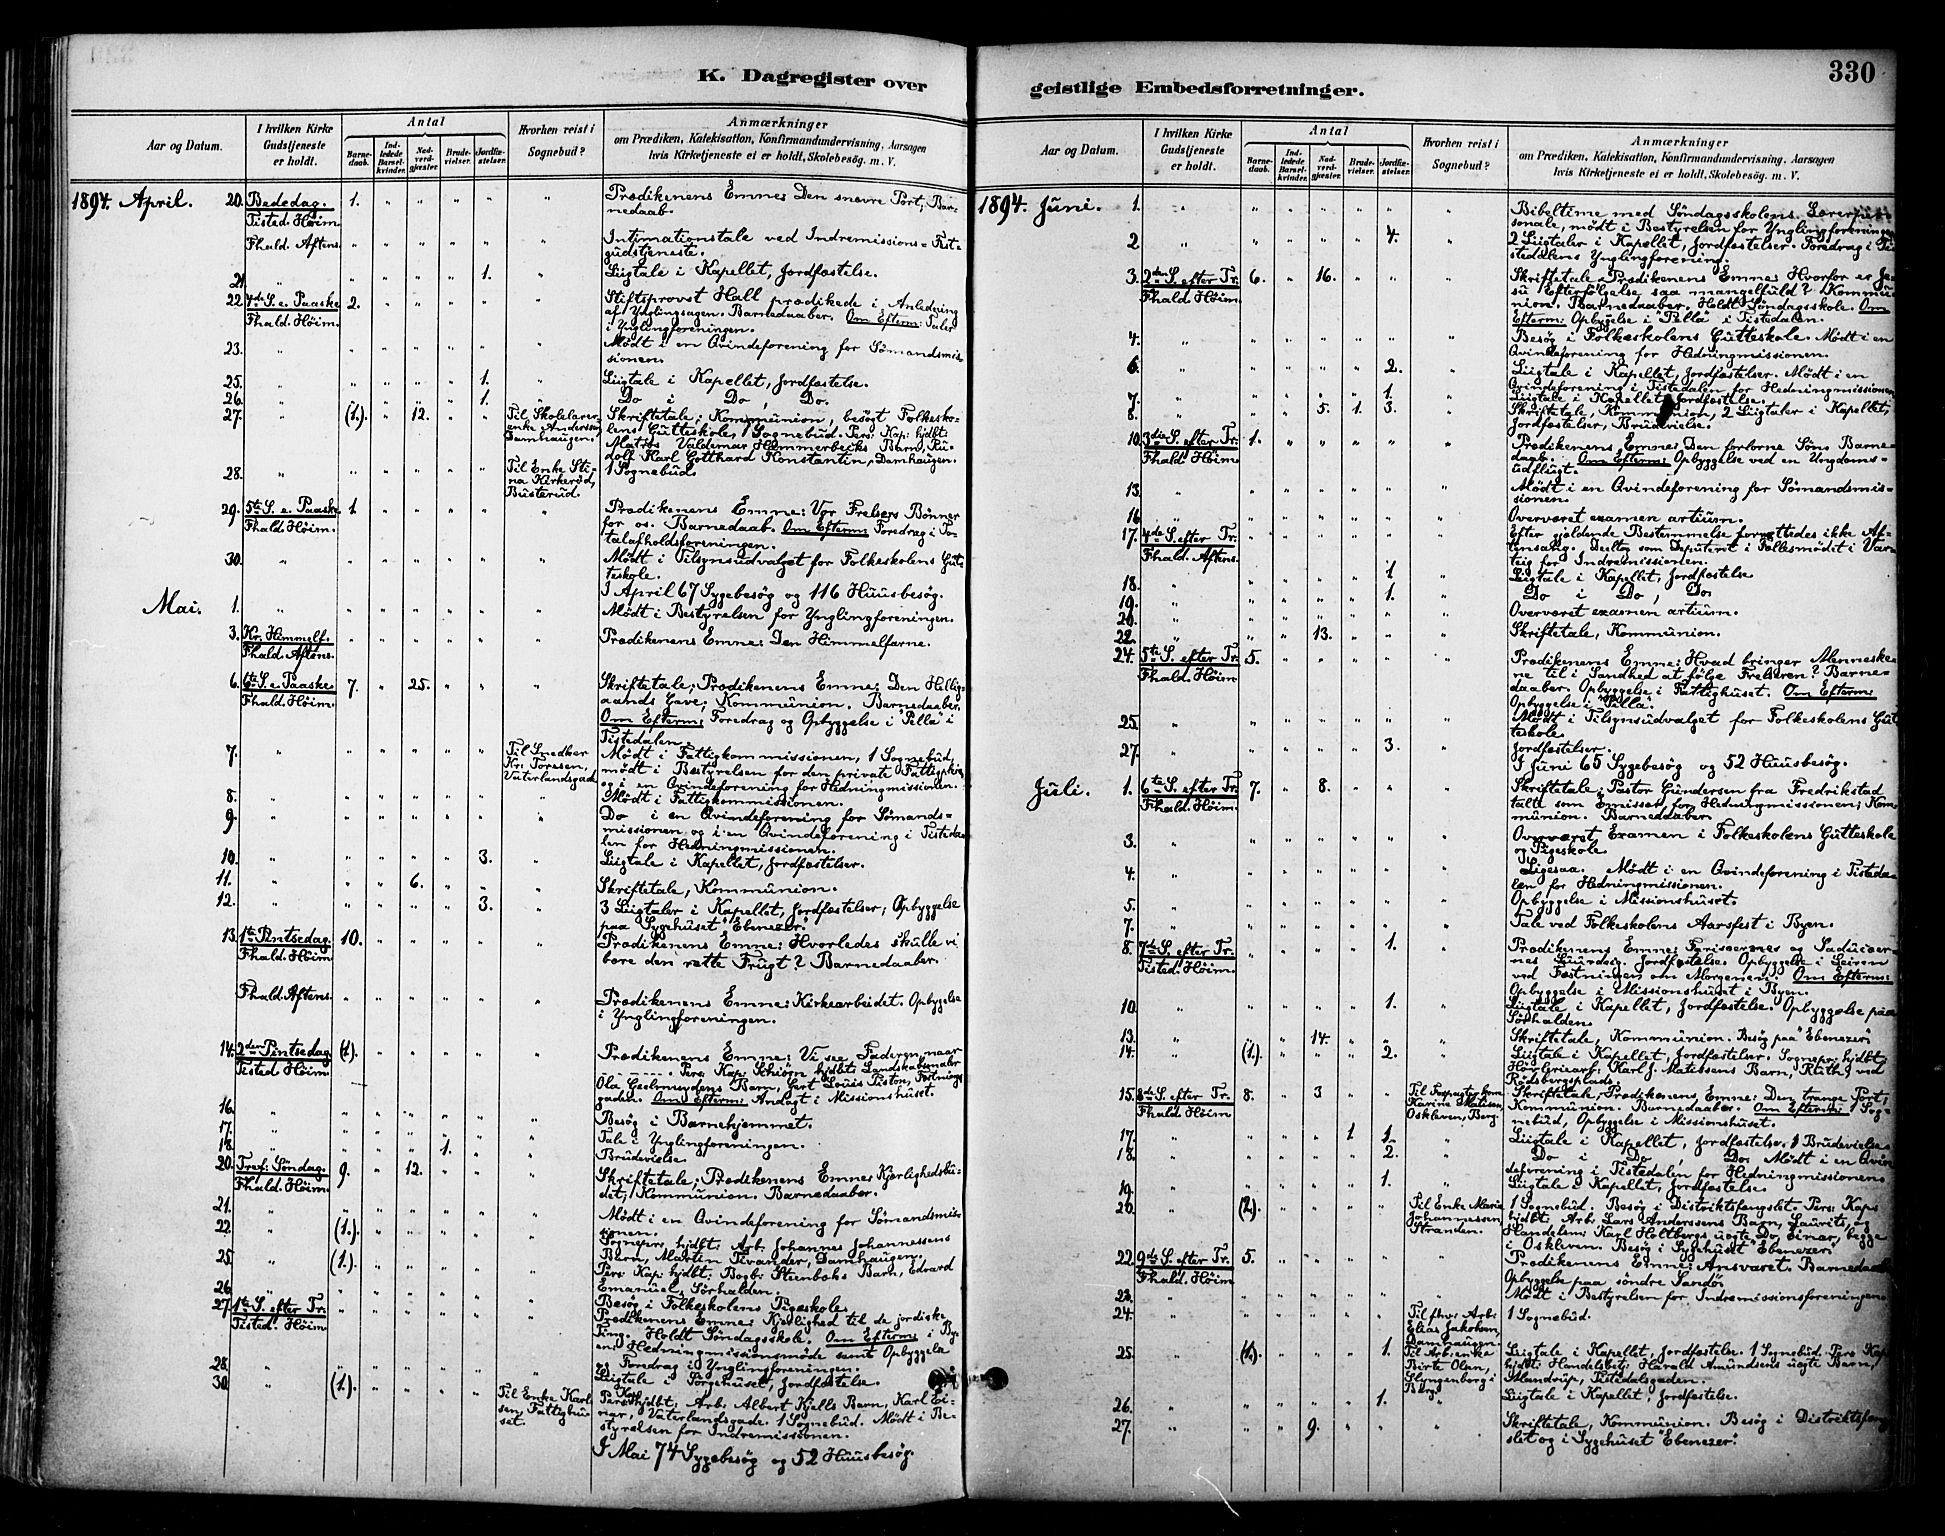 330
K. Dagregister over
geistlige Embedsforretninger.
Aar og Datum.
I hvilken Kirke
Gudstjeneste
er holdt.
Antal
Barne-
daab.
Ind-
ledede
Barsel-
kvinder.
Nad-
verd-
gjæster.
Brude-
vielser.
Jordfæ-
stelser.
Hvorhen reist i
Sognebud?
Anmærkninger
om Prædiken, Katekisation, Konfirmandundervisning, Aarsagen
hvis Kirketjeneste ei er holdt, Skolebesøg. m. V.
1894. April. 20. Bededag. 1. Prædikenens Emne: Den snevre Port; Bar-
Tisted. Høim. nedaab.
Fhald. Aftens. Intimationstale ved Indremissions-Fest-
gudstjeneste.
21. 1. Liigtale i Kapellet, Jordfæstelse.
22. 4de S. e. Paaske 2. Stiftsprovst Hall prædikede i Anledning
Fhald. Høim. af Ynglingsagen. Barnedaaber. Om Efterm: Taler
i Ynglingforeningen.
23. Mødt i en Qvindeforening for Sømandsmis-
sionen.
25. 1. Liigtale i Kapellet, Jordfæstelse.
26. 1. Do i Do, Do.
27. (1.) 12. Til Skolelærer- Skriftetale; Kommunion, besøgt Folkesko-
enke Anderssen, lens Gutteskole, 1 Sognebud. Pers. Kap: hjdbt:
Damhaugen. Matros Valdemar Hammerbecks Barn, Ru-
dolf Karl Gotthard Konstantin, Damhaugen.
28. Til Enke Sti- 1 Sognebud.
na Kirkerød,
Busterud.
29. 5te S. e. Paaske 1 Prædikenens Emne: Vor Frelsers Bønner
Fhald. Høim. for os. Barnedaab. Om Efterm: Foredrag i To-
talafholdsforeningen.
30. Mødt i Tilsynsudvalget for Folkeskolens Gut-
teskole.
I April 67 Sygebesøg og 116 Huusbesøg.
Mai. 1. Mødt i Bestyrelsen for Ynglingforeningen.
3. Kr. Himmelf. Prædikenens Emne: Den Himmelfarne.
Fhald. Aftens.
6. 6te S. e. Paaske 7. 25. Skriftetale; Prædikenens Emne: Den Hellig-
Fhald. Høim. aands Gave; Kommunion. Barnedaaber.
Om Efterm: Foredrag og Opbyggelse i "Pella" i
Tistedalen.
7. Til Snedker Mødt i Fattigkommissionen, 1 Sognebud,
Kr. Toresen, mødt i Bestyrelsen for den private Fattigpleie,
Vaterlandsgade. og i en Qvindeforening for Hedningmissionen.
8. Mødt i Fattigkommissionen.
9. Do i en Qvindeforening for Sømands-
missionen og i en Qvindeforening i Tisteda-
len for Hedningmissionen.
10. 3. Liigtale i Kapellet, Jordfæstelser.
11. 6. Skriftetale, Kommunion.
12. 3. 3 Liigtaler i Kapellet, Jordfæstelser; Opbyggelse
paa Sygehuset "Ebenezer".
13. 1ste Pintsedag. 10. Prædikenens Emne: Hvorledes skulle vi
Fhald. Høim. bære den rette Frugt? Barnedaaber.
Fhald. Aftens. Prædikenens Emne: Kirkearbeidet. Opbyggelse
i Ynglingforeningen.
14. 2den Pintsedag (1.) Prædikenens Emne: Vi see Faderen, naar
Tisted Høim. - - - - - - . Pers. Kap. Schiørn hjdbt: Landskabsmaler
Ola Geelmuydens Barn, Gert Louis Piston, Fæstnings
gaden. Om Efterm: Andagt i Missionshuset.
16. Besøg i Barnehjemmet.
17. Tale i Ynglingforeningen.
18. 1. Brudevielse.
20. Tref: Søndag. 9. 12. Skriftetale; Prædikenens Emne: Kjærlighedsbu-
Fhald. Høim. det; Kommunion. Barnedaaber.
21. Mødt i en Qvindeforening for Sømandsmis-
sionen.
22. (1.) Sognepr: hjdbt: Arb. Johannes Johannessens
Barn, Martin Tivander, Damhaugen.
25. (1.) Pers. Kap: hjdbt: Bogb: Steenboks Barn, Edvard
Emanuel, Sørhalden.
26. Besøg i Folkeskolens Pigeskole.
27. 1ste S. efter Tr. Prædikenens Emne: Kjærlighed til de jordiske
Tisted. Høim. Ting. Holdt Søndagsskole. Om Efterm: i By-
en: Hedningmissionsmøde samt Opbyggelse
og Foredrag i Ynglingforeningen.
28. Liigtale i Sørgehuset, Jordfæstelse.
30. (1.) Til Enke Karl- Pers. Kap: hjdbt: Arb. Albert Kjells Barn, Karl Ei-
sen, Fattighu- nar, Vaterlandsgade. 1 Sognebud. Mødt i Be-
set. styrelsen for Indremissionen.
I Mai 74 Sygebesøg og 52 Huusbesøg.
Aar og Datum.
I hvilken Kirke
Gudstjeneste
er holdt.
Antal
Barne-
daab.
Ind-
ledede
Barsel-
kvinder.
Nad-
verd-
gjæster.
Brude-
vielser.
Jordfæ-
stelser.
Hvorhen reist i
Sognebud?
Anmærkninger
om Prædiken, Katekisation, Konfirmandundervisning, Aarsagen
hvis Kirketjeneste ei er holdt, Skolebesøg. m. V.
1894. Juni. 1. Bibeltime med Søndagsskolens Lærerper-
sonale, mødt i Bestyrelsen for Ynglingforeningen
2. 4. 2 Liigtaler i Kapellet, Jordfæstelser. Foredrag i Ti-
stedalens Ynglingforening.
3. 2den S. efter Tr. 6. 16. Skriftetale. Prædikenens Emne: Hvorfor er Je-
Fhald. Høim. su Efterfølgelse saa mangelfuld? Kommu-
nion. Barnedaaber. Holdt Søndagsskole. Om
Efterm: Opbyggelse i "Pella" i Tistedalen.
4. Besøg i Folkeskolens Gutteskole. Mødt i en
Qvindeforening for Hedningmissionen.
6. 2. Liigtale i Kapellet, Jordfæstelser. Mødt i en
Qvindeforening i Tistedalen for Hedningmissionen
7. 1. Liigtale i Kapellet, Jordfæstelse.
8. 5. 1. 3. Skriftetale, Kommunion, 2 Liigtaler i Kapellet,
Jordfæstelser, Brudevielse.
10. 3die S. efter Tr. 1. Prædikenens Emne: Den forlorne Søn. Barne-
Fhald. Høim. daab. Om Efterm: Opbyggelse ved en Ungdoms-
udflugt.
13. Mødt i en Qvindeforening for Sømandsmis-
sionen.
16. Overværet examen artium.
17. 4de S. efter Tr. Efter gjældende Bestemmelse forrettedes ikke Af-
Fhald. Aftens. tensang. Deeltog som Deputeret i Fællesmødet i Var-
teig for Indremissionen.
18. 1 Liigtale i Kapellet, Jordfæstelse
19. 1. Do i Do, Do.
20. Overværet examen artium.
22. 13. Skriftetale, Kommunion.
24. 5te S. efter Tr. 5. Prædikenens Emne: Hvad bringer Menneske-
Fhald. Høim. ne til i Sandhed at følge Frelseren? Barne-
daaber. Opbyggelse i Fattighuset. Om Efterm:
Opbyggelse i "Pella".
25. Mødt i Tilsynsudvalget for Folkeskolens Gut-
teskole.
27. 3. Jordfæstelser.
I Juni 65 Sygebesøg og 52 Huusbesøg.
Juli. 1. 6te S. efter Tr. 7. 8. Skriftetale; Pastor Gundersen fra Fredrikstad
Fhald. Høim. talte som Emissær for Hedningmissionen; Kom-
munion. Barnedaaber.
3. Overværet Examen i Folkeskolens Gutteskole
og Pigeskole.
4. Ligesaa. Mødt i en Qvindeforening i Tisteda-
len for Hedningmissionen.
5. Opbyggelse i Missionshuset.
7. Tale ved Folkeskolens Aarsfest i Byen.
8. 7de S. efter Tr. 1. Prædikenens Emne: Farisæernes og Saducæer-
Tisted. Høim. nes Suurdeig. Jordfæstelse. Opbyggelse i Leiren
ved Fæstningen om Morgenen. Om Efterm:
Opbyggelse i Missionshuset i Byen.
10. 1. Liigtale i Kapellet, Jordfæstelse. Opbyggelse paa
Sørhalden.
13. 14. Skriftetale, Kommunion. Besøg paa "Ebenezer".
14. (1.) 2. Liigtale i Kapellet, Jordfæstelser. Sognepr: hjdbt:
Karl J. Matissens Barn, Ruth, ved
Rødsbergsplads.
15. 8de S. efter Tr. 8. 3 Skriftetale, Prædikenens Emne: Den trange Port;
Fhald. Høim Karine Matisen, Kommunion. Barnedaaber. Om Efterm: 1 Sog-
Oskleven, Berg. nebud, Opbyggelse i Missionshuset.
17. 1 1. Liigtale i Kapellet, Jordfæstelse. 1 Brudevielse
18. 2. Do i Do, Do. Mødt i en Qvin
deforening i Tistedalen for Hedningmissionen
19. 1. Liigtale i Kapellet, Jordfæstelse.
20. (2.) Til Enke Maria 1 Sognebud. Besøg i Distriktsfængslet. Pers. Kap:
Johannessen, hjdbt: Arb. Lars Anderssens Barn, Laurits, og
Stranden. Handelsm: Karl Holtbergs uægte Do, Einar, begge
i Oskleven. Besøg i Sygehuset "Ebenezer".
22. 9de S. efter Tr. 5. Prædikenens Emne: Ansvaret. Barnedaab
Fhald. Høim Opbyggelse paa søndre Sandø.
23. Mødt i Bestyrelsen for Indremissionsforeningen
24. Til fhv: Arb: 1 Sognebud.
Elias Jakobsen,
Damhaugen.
25. (1.) 1. Til Arb.enke Liigtale i Kapellet, Jordfæstelse. 1 Sognebud. Pers. Kap:
Birte Olsen, hjdbt: Handelsbet: Harald Amundsens uægte Barn,
Slyngenborg i Mandrup, Tistedalsgaden.
Berg.
26. 1. Liigtale i Kapellet, Jordfæstelse.
27. 9. Skriftetale, Kommunion. Besøg i Distriktsfæng
slet og i Sygehuset "Ebenezer".